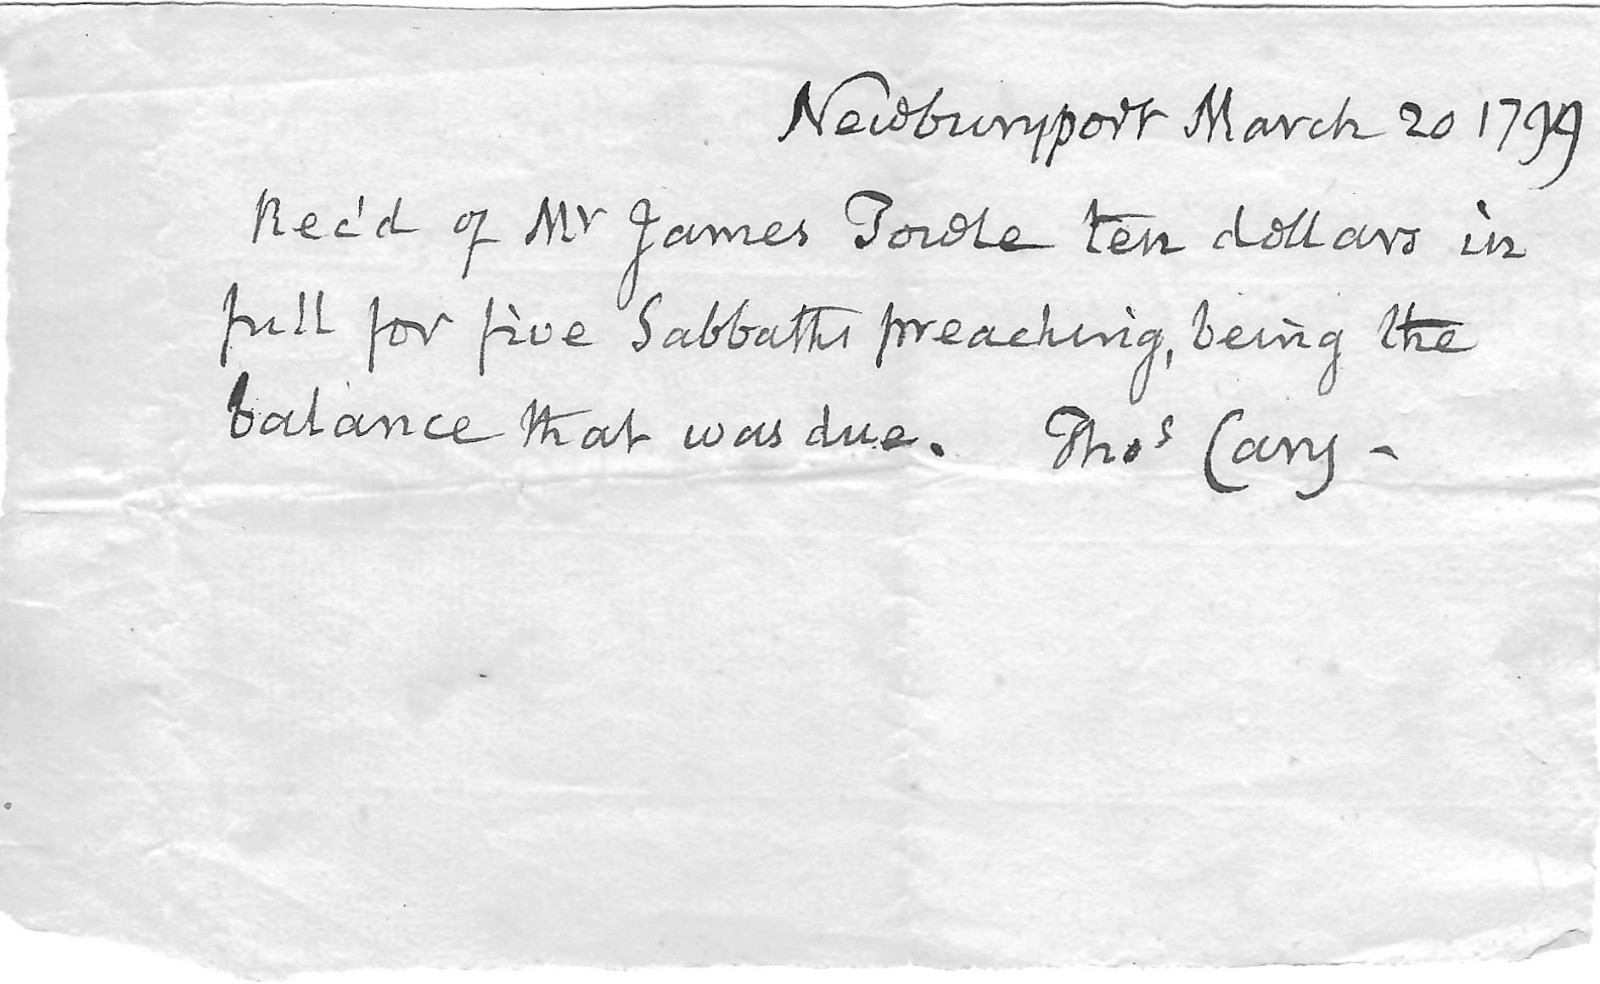 Newburyport March 20 1799
Rec'd of Mr James Towle ten dollars in
full for five Sabbaths preaching, being the
balance that was due. Thos Cary -